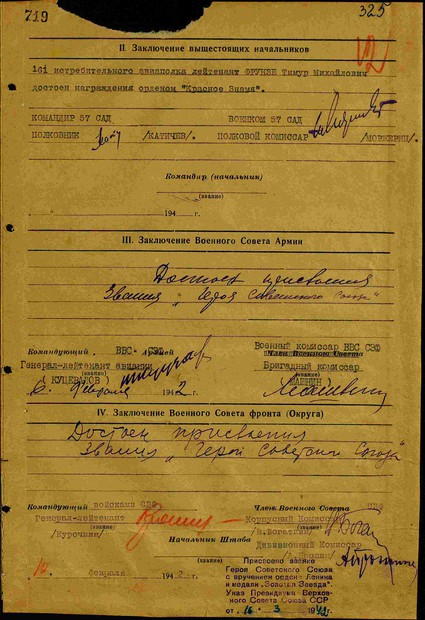 719
325
II. Заключение вышестоящих начальников
161 истребительного авиаполка лейтенант ФРУНЗЕ Тимур Михайлович
достоен награждения орденом "Красное Знамя".
КОМАНДИР 57 САД ВОЕНКОМ 57 САД
ПОЛКОВНИК /КАТИЧЕВ/ ПОЛКОВОЙ КОМИССАР
Командир (начальник)
(звание)
194 г.
III. Заключение Военного Совета Армии
Достоен присвоения
звания „Героя Советского Союза"
Командующий ВВС СЗФ Армией Военный комиссар ВВС СЗФ
Член Военного Совета
Генерал-лейтенант авиации Бригадный комиссар
(звание) (звание)
(КУЦЕВАЛОВ)
6. Февраля 1942 г.
IV. Заключение Военного Совета фронта (Округа)
Достоен присвоения
звания „Герой Советского Союза"
Командующий войсками СЗФ Член Военного Совета СЗФ
Генерал-лейтенант Корпусный Комиссар
(звание) (звание)
/Курочкин/ /В.Богаткин/
Начальник Штаба Дивизионный Комиссар
февраля 1942 г.
Присвоено звание
Героя Советского Союза
с вручением ордена Ленина
и медали „Золотая Звезда".
Указ Президиума Верхов-
ного Совета Союза ССР
от „16" 3 1942г.